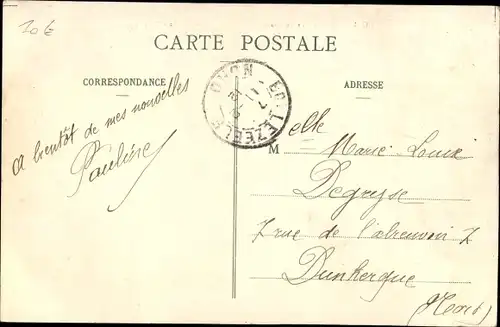 20€
CARTE POSTALE
CORRESPONDANCE
ADRESSE
A bientôt de mes nouvelles
Pauline
LEZEELE NORD
Melle Marie Louise
Degryse
7 rue de l'abreuvoir 7
Dunkerque
(Nord)